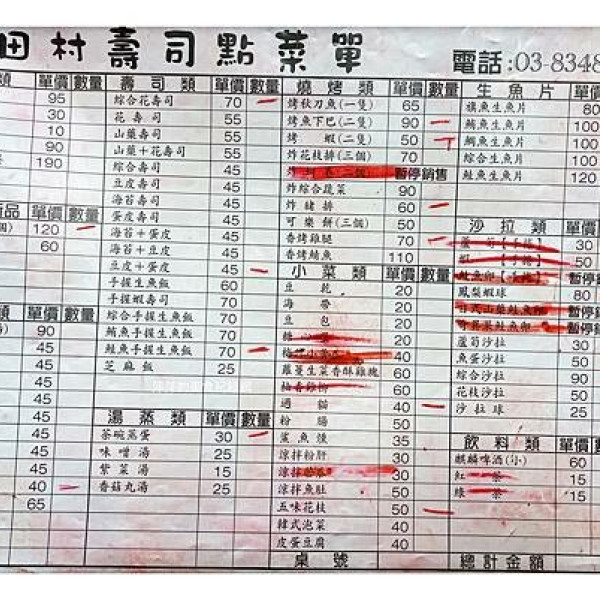 田村壽司點菜單
電話:03-8348
類 單價 數量
95
30
10
90
190
品 單價 數量
120
60
類 單價 數量
90
45
45
45
45
45
45
45
40
65
壽司類 單價 數量
綜合花壽司 70
花壽司 55
山藥壽司 55
山藥+花壽司 55
綜合壽司 45
豆皮壽司 45
海苔壽司 45
蛋皮壽司 45
海苔+蛋皮 45
海苔+豆皮 45
豆皮+蛋皮 45
手握生魚飯 60
手握蝦壽司 70
綜合手握生魚飯 70
鮪魚手握生魚飯 70
鮭魚手握生魚飯 70
芝麻飯 25
湯蒸類 單價 數量
茶碗蒸蛋 30
味噌湯 15
紫菜湯 15
香菇丸湯 25
燒烤類 單價 數量
烤秋刀魚(一隻) 65
烤魚下巴(二隻) 90
烤蝦(二隻) 50
炸花枝排(三個) 70
暫停銷售
炸綜合蔬菜 90
炸豬排 60
可樂餅(三個) 50
香烤雞腿 70
香烤鯖魚 110
小菜類 單價 數量
豆乾 20
海帶 20
豆包 20
20
40
蘿蔓生菜香酥雞塊 60
60
過貓 40
粉腸 50
鯊魚煙 35
涼拌粉肝 30
涼拌 30
涼拌魚肚 50
五味花枝 50
韓式泡菜 40
皮蛋豆腐 40
桌號
生魚片 單價
旗魚生魚片 80
鮪魚生魚片 100
鯛魚生魚片 100
綜合生魚片 100
鮭魚生魚片 120
沙拉類 單價
蘆筍【手捲】 30
蝦【手捲】 50
鮭魚卵【手捲】 暫停
鳳梨蝦球 80
日式山藥鮭魚卵 暫停銷
暫停銷
蘆筍沙拉 30
魚蛋沙拉 50
綜合沙拉 90
花枝沙拉 50
沙拉球 25
飲料類 單價
麒麟啤酒(小) 60
紅茶 15
綠茶 15
總計金額